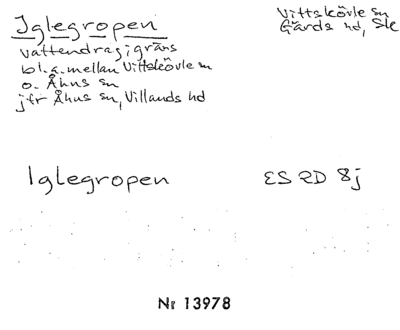 Iglegropen
Vittskövle sn
Gärds hd, Sk
vattendrag i gräns
bl.a. mellan Vittskövle sn
o. Åhus sn
jfr Åhus sn, Villands hd
Iglegropen
ES RD 8j
Nr 13978